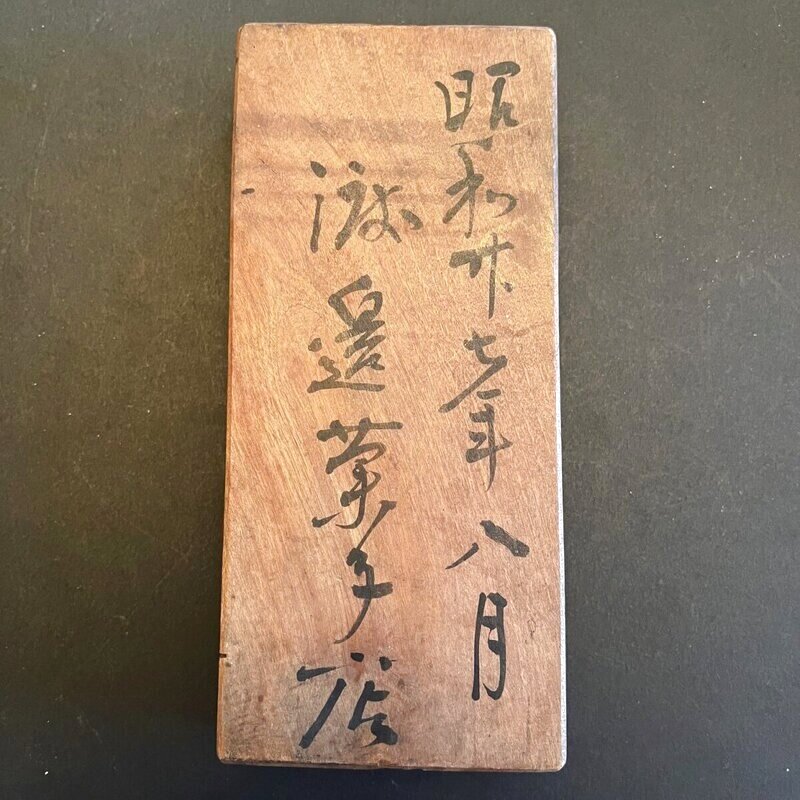 昭和廿七年八月
渡邉菓子店